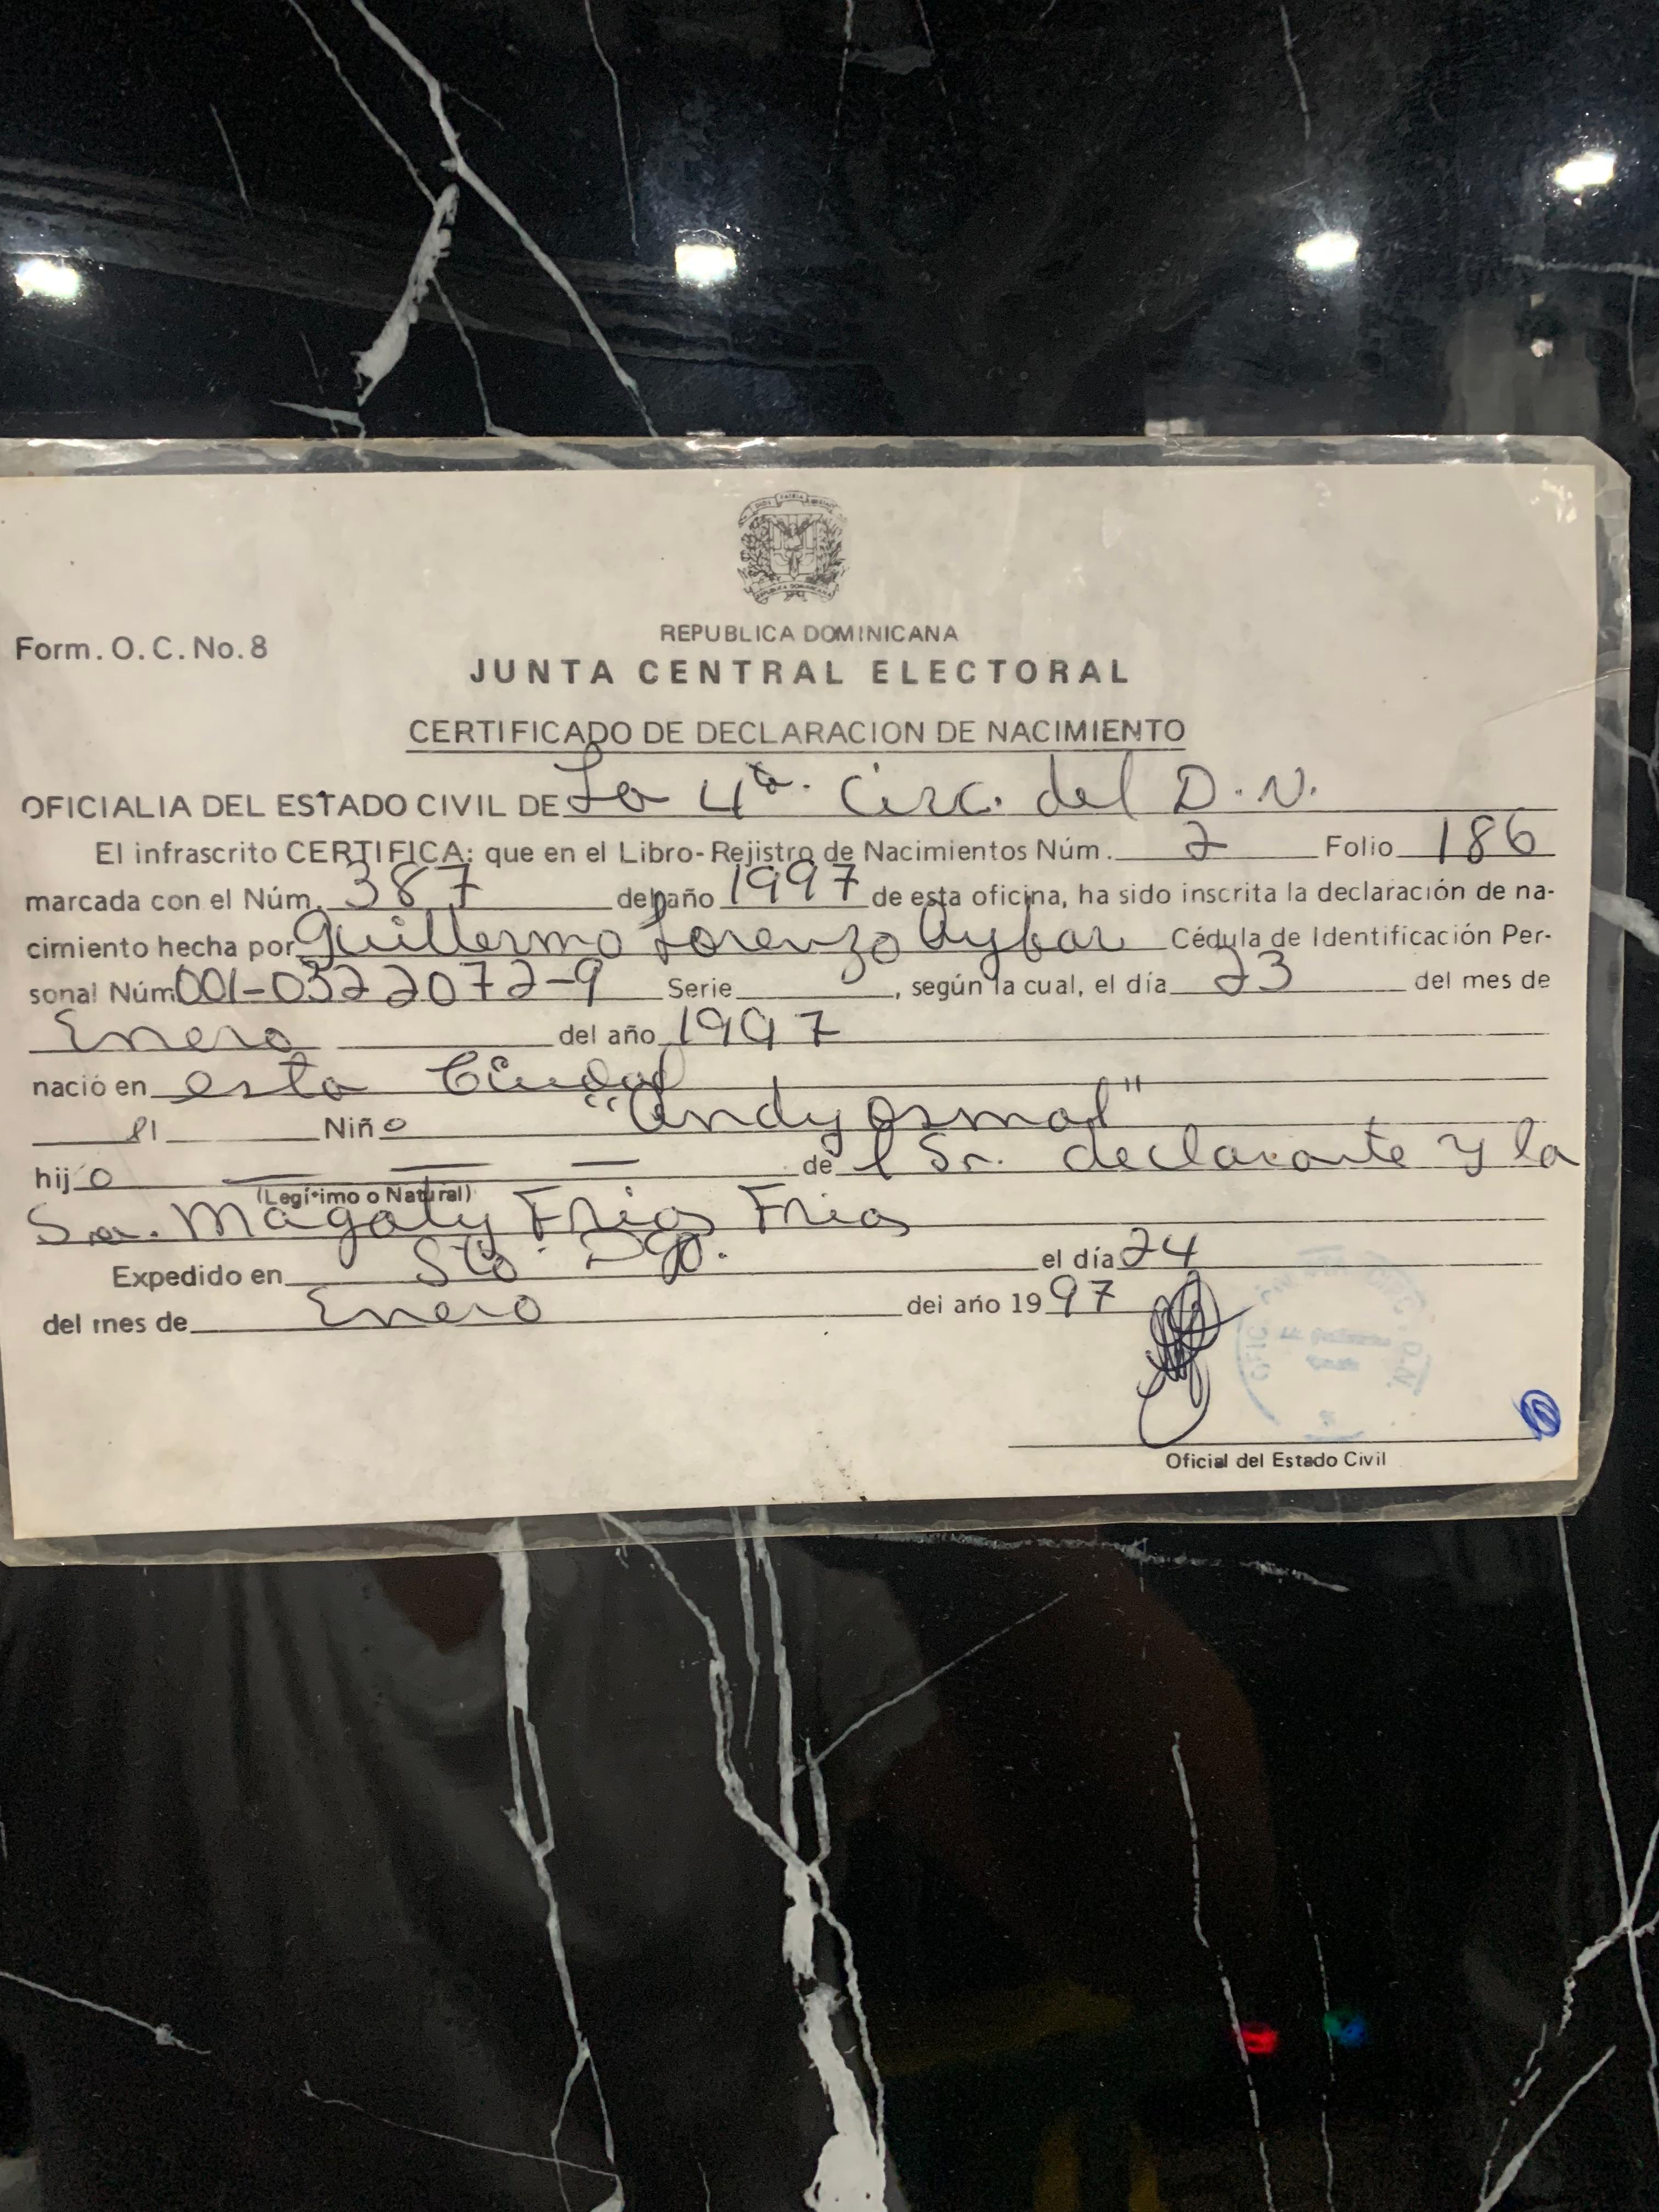 Form. O. C. No. 8
REPUBLICA DOMINICANA
JUNTA CENTRAL ELECTORAL
CERTIFICADO DE DECLARACION DE NACIMIENTO
OFICIALIA DEL ESTADO CIVIL DE La 4ta. Circ. del D.N.
El infrascrito CERTIFICA: que en el Libro-Rejistro de Nacimientos Núm. 2 Folio 186
marcada con el Núm. 387 del año 1997 de esta oficina, ha sido inscrita la declaración de na-
cimiento hecha por Guillermo Lorenzo Aybar Cédula de Identificación Per-
sonal Núm 001-0322072-9 Serie , según la cual, el día 23 del mes de
Enero del año 1997
nació en esta Ciudad
el Niño "Andy Osmal"
hijo — — — del Sr. declarante y la
(Legítimo o Natural)
Sra. Magaly Frias Frias
Expedido en Sto. Dgo. el día 24
del mes de Enero del año 1997
Oficial del Estado Civil